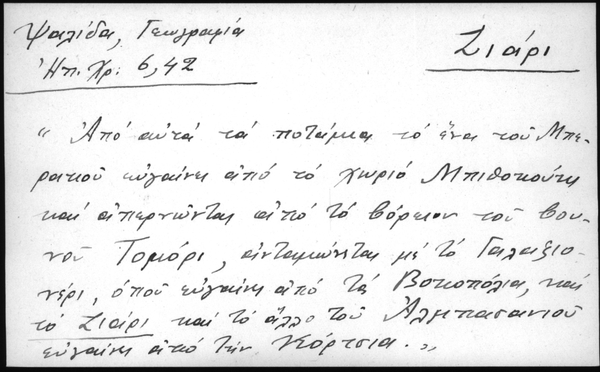 Ψαλίδα, Γεωγραφία
Ἠπ. Χρ. 6, 42
Σιάρι
" Ἀπό αὐτά τά ποτάμια τό ἕνα τοῦ Μπε-
ρατιοῦ εὐγαίνει ἀπό τό χωριό Μπιθοκούκι
καί ἀπερνῶντας ἀπό τό βόρειον τοῦ βου-
νοῦ Τομόρι, ἀνταμώνεται μέ τό Γαλαξιο-
νέρι, ὁποῦ εὐγαίνει ἀπό τά Βοκοπόλια, καί
τό Σιάρι καί τό ἄλλο τοῦ Ἀλμπασανιοῦ
εὐγαίνει ἀπό τήν Κόρτσια. "